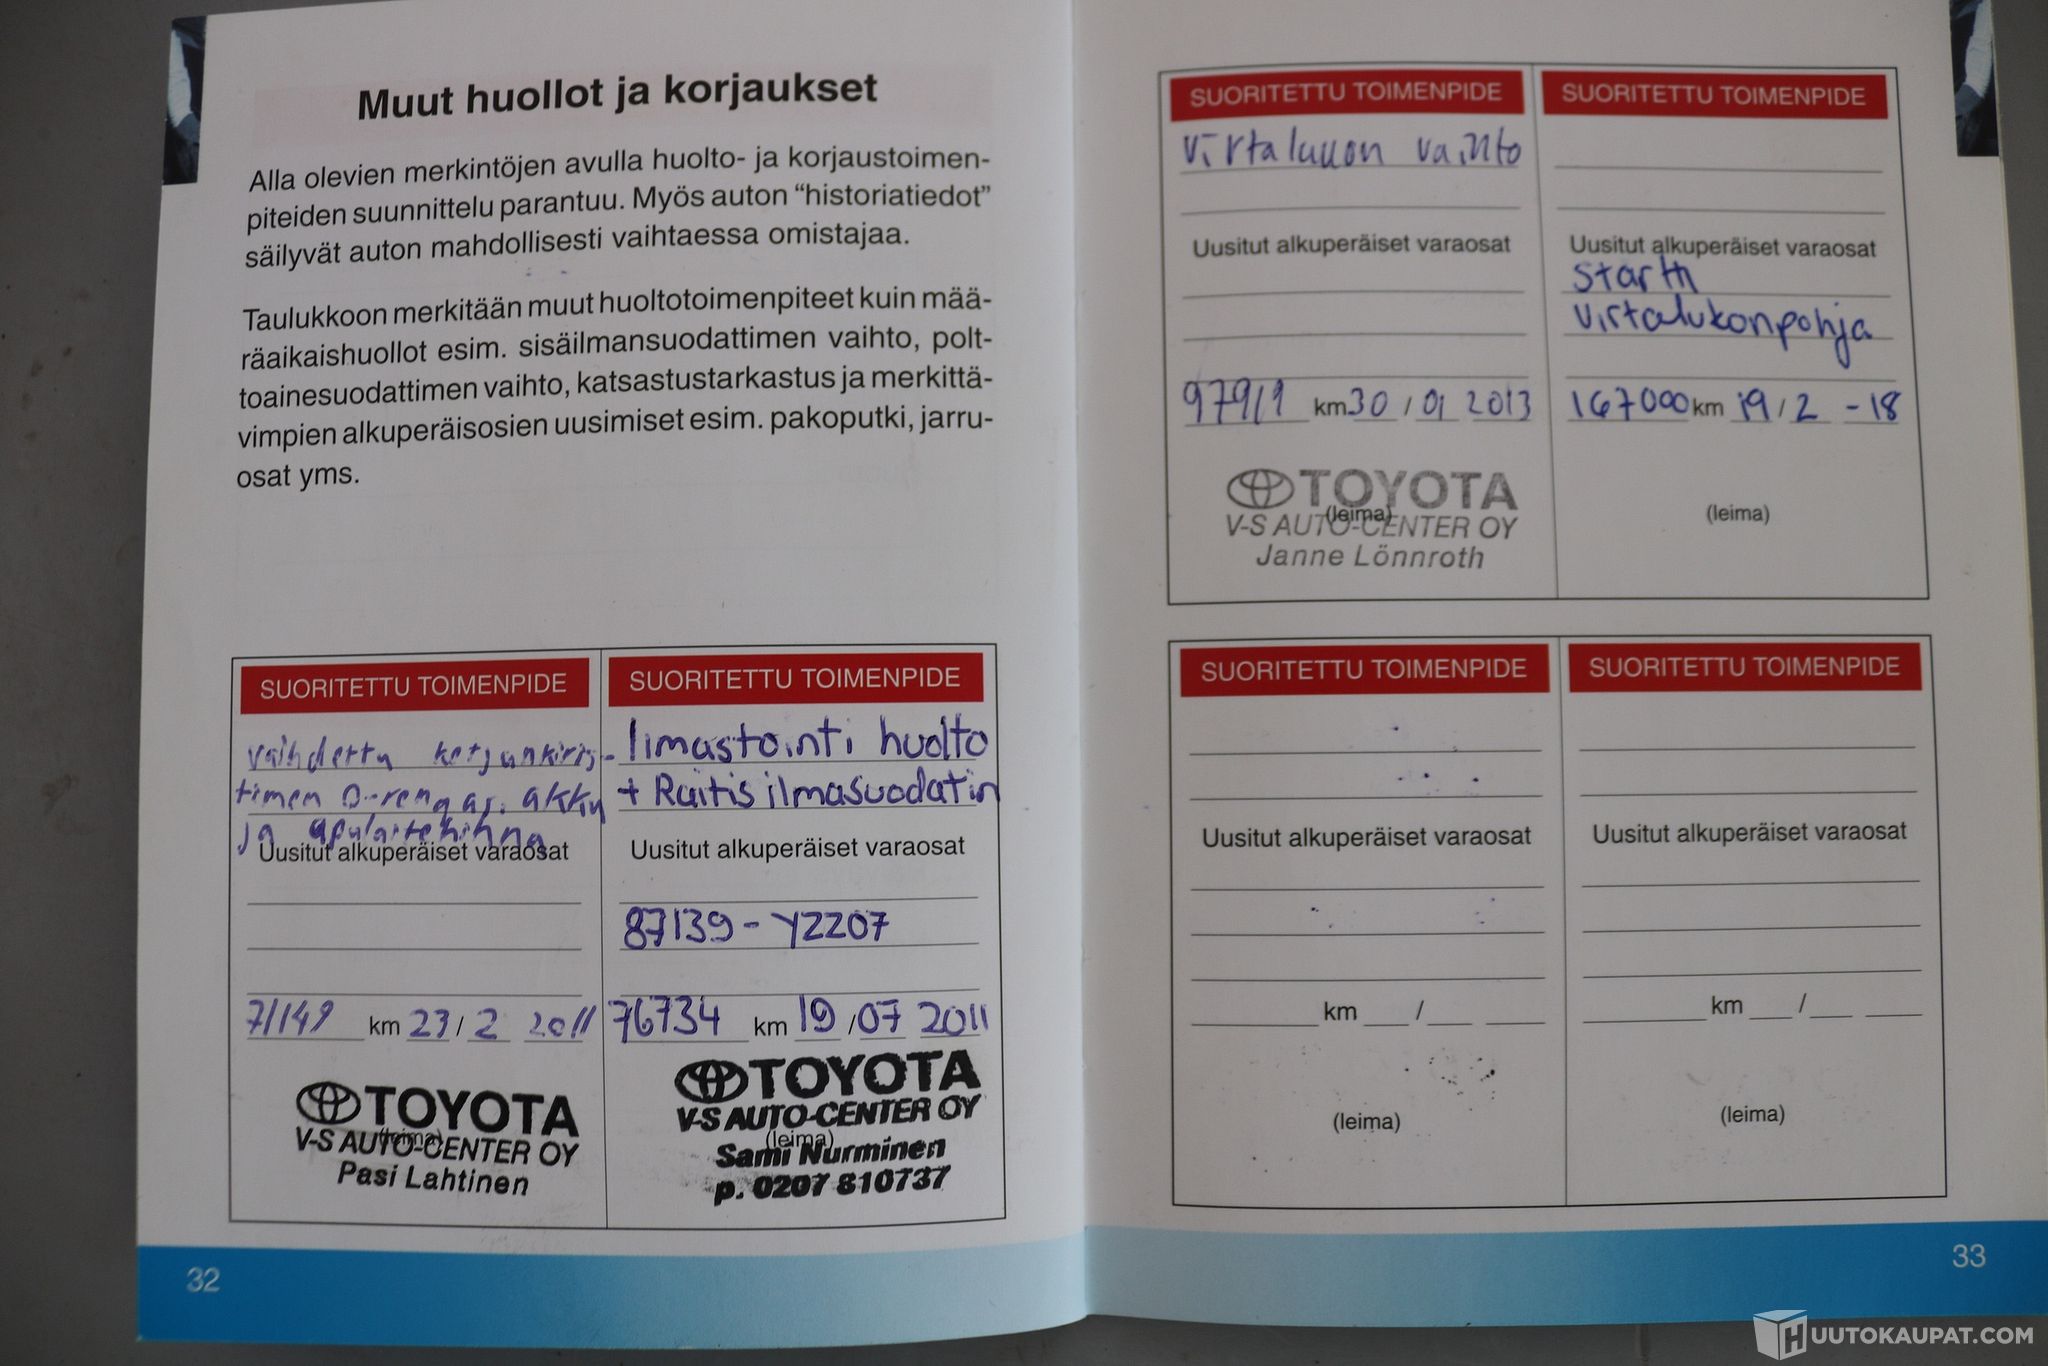 Muut huollot ja korjaukset
Alla olevien merkintöjen avulla huolto- ja korjaustoimen-
piteiden suunnittelu parantuu. Myös auton “historiatiedot”
säilyvät auton mahdollisesti vaihtaessa omistajaa.
Taulukkoon merkitään muut huoltotoimenpiteet kuin mää-
räaikaishuollot esim. sisäilmansuodattimen vaihto, polt-
toainesuodattimen vaihto, katsastustarkastus ja merkittä-
vimpien alkuperäisosien uusimiset esim. pakoputki, jarru-
osat yms.
SUORITETTU TOIMENPIDE
vaihdettu ketjunkiris-
timen O-rengas, akku
ja apulaitehihna
Uusitut alkuperäiset varaosat
71149 km 23 / 2 2011
TOYOTA
(leima)
V-S AUTO-CENTER OY
Pasi Lahtinen
SUORITETTU TOIMENPIDE
Ilmastointi huolto
+ Raitis ilmasuodatin
Uusitut alkuperäiset varaosat
87139-YZZ07
76734 km 19 / 07 2011
TOYOTA
V-S AUTO-CENTER OY
(leima)
Sami Nurminen
p. 0207 810737
32
SUORITETTU TOIMENPIDE
Virtalukon vaihto
Uusitut alkuperäiset varaosat
97911 km 30 / 01 2013
TOYOTA
(leima)
V-S AUTO-CENTER OY
Janne Lönnroth
SUORITETTU TOIMENPIDE
Uusitut alkuperäiset varaosat
startti
virtalukonpohja
167000 km 19 / 2 -18
(leima)
SUORITETTU TOIMENPIDE
Uusitut alkuperäiset varaosat
km /
(leima)
SUORITETTU TOIMENPIDE
Uusitut alkuperäiset varaosat
km /
(leima)
33
HUUTOKAUPAT.COM